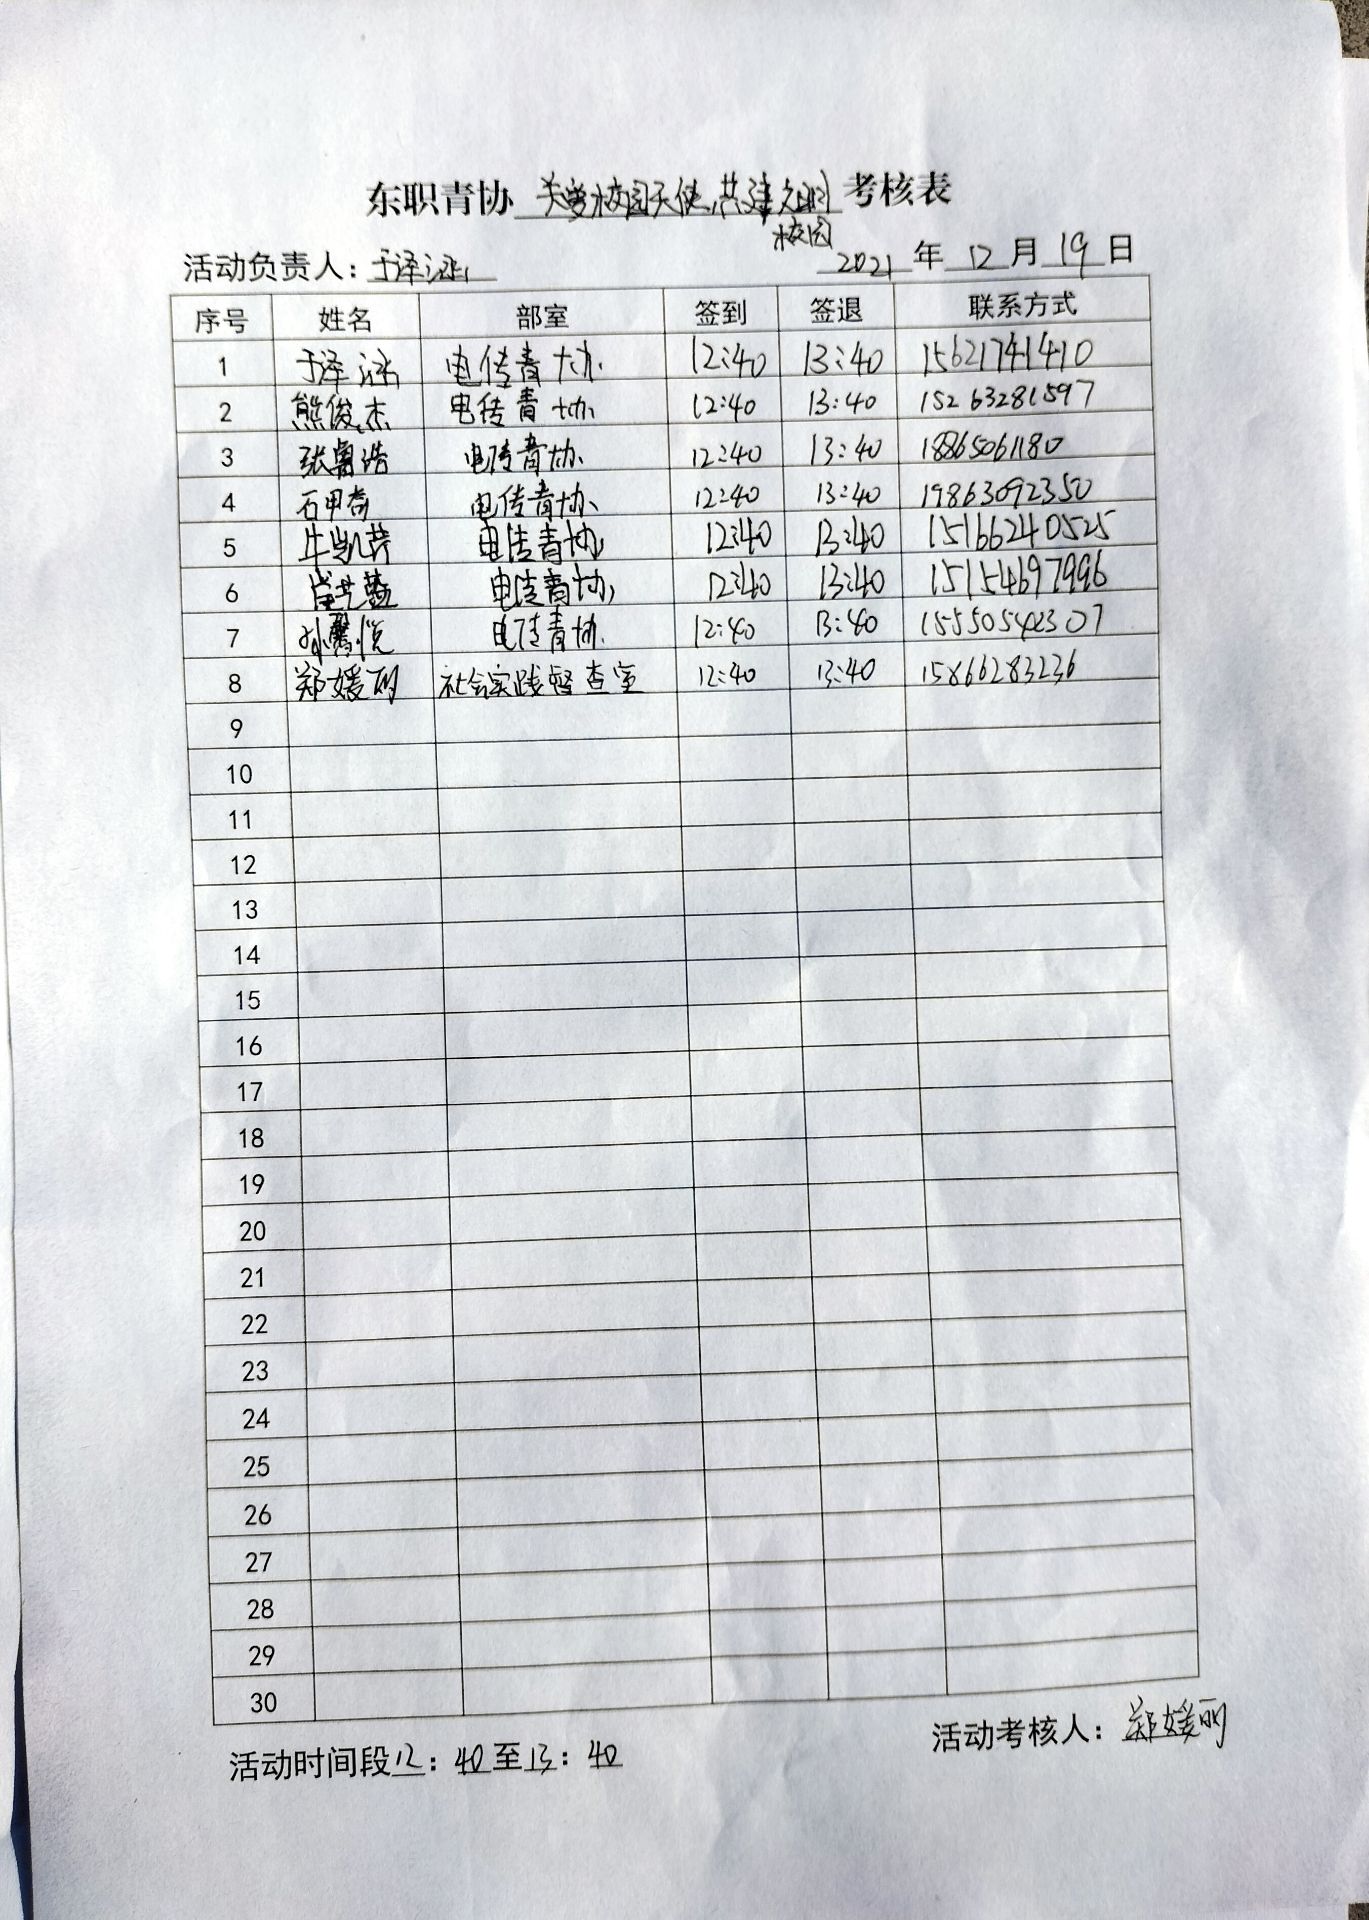 东职青协 关爱校园天使,共建文明 考核表
校园
活动负责人:于泽泓 2021 年 12 月 19 日
序号 姓名 部室 签到 签退 联系方式
1 于泽泓 电传青协 12:40 13:40 15621741410
2 熊俊杰 电传青协 12:40 13:40 15263281597
3 张鲁浩 电传青协 12:40 13:40 18865061180
4 石甲奇 电传青协 12:40 13:40 19863092350
5 牛凯芹 电传青协 12:40 13:40 15166240525
6 电传青协 12:40 13:40 15154697996
7 孙馨悦 电传青协 12:40 13:40 15550542307
8 郑媛丽 社会实践督查室 12:40 13:40 15866283236
9
10
11
12
13
14
15
16
17
18
19
20
21
22
23
24
25
26
27
28
29
30
活动时间段12:40至13:40 活动考核人:郑媛丽